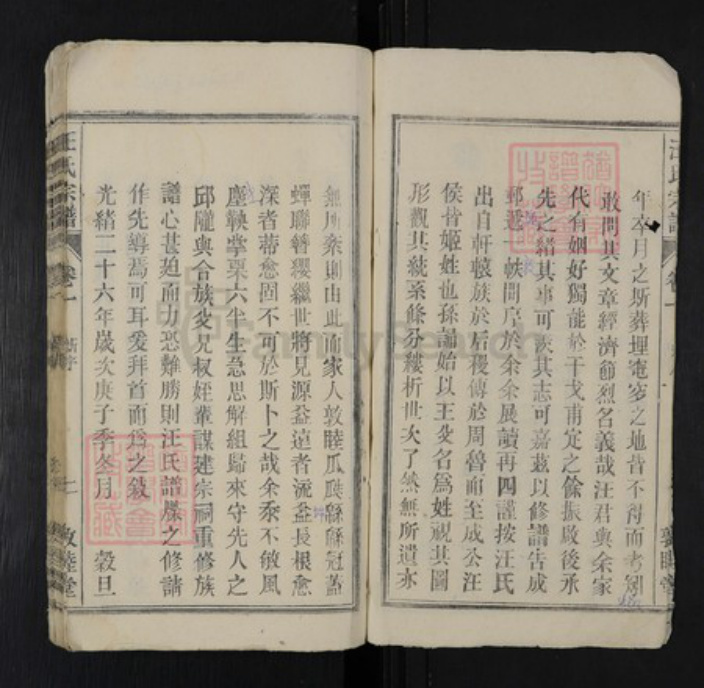 年卒月之斯葬埋電穸之地皆不得而考劉
敢問其文章經濟節烈名義哉汪君與余家
代有姻好獨能於干戈甫定之餘振啟後承
先之緒其事可法其志可嘉茲以修譜告成
郵遞一帙問序於余余展讀再四謹按汪氏
出自軒轅族於后稷傳於周魯而至成公汪
侯昔姬姓也孫誦始以王父名為姓視其圖
形觀其統系條分縷析世次了然無所遺亦
無所紊則由此而家人敦睦瓜瓞緜緜冠蓋
蟬聯簪纓繼世將見源益遠者流益長根愈
深者蒂愈固不可於斯卜之哉余忝不敏風
塵鞅掌粟六半生急思解組歸來守先人之
邱隴與合族父兄叔姪輩謀建宗祠重修族
譜心甚廹而力恐難勝則汪氏譜牒之修請
作先導焉可耳爰拜首而為之敘
光緒二十六年歲次庚子季冬月 穀旦
汪氏宗譜 卷一 新序 敦睦堂